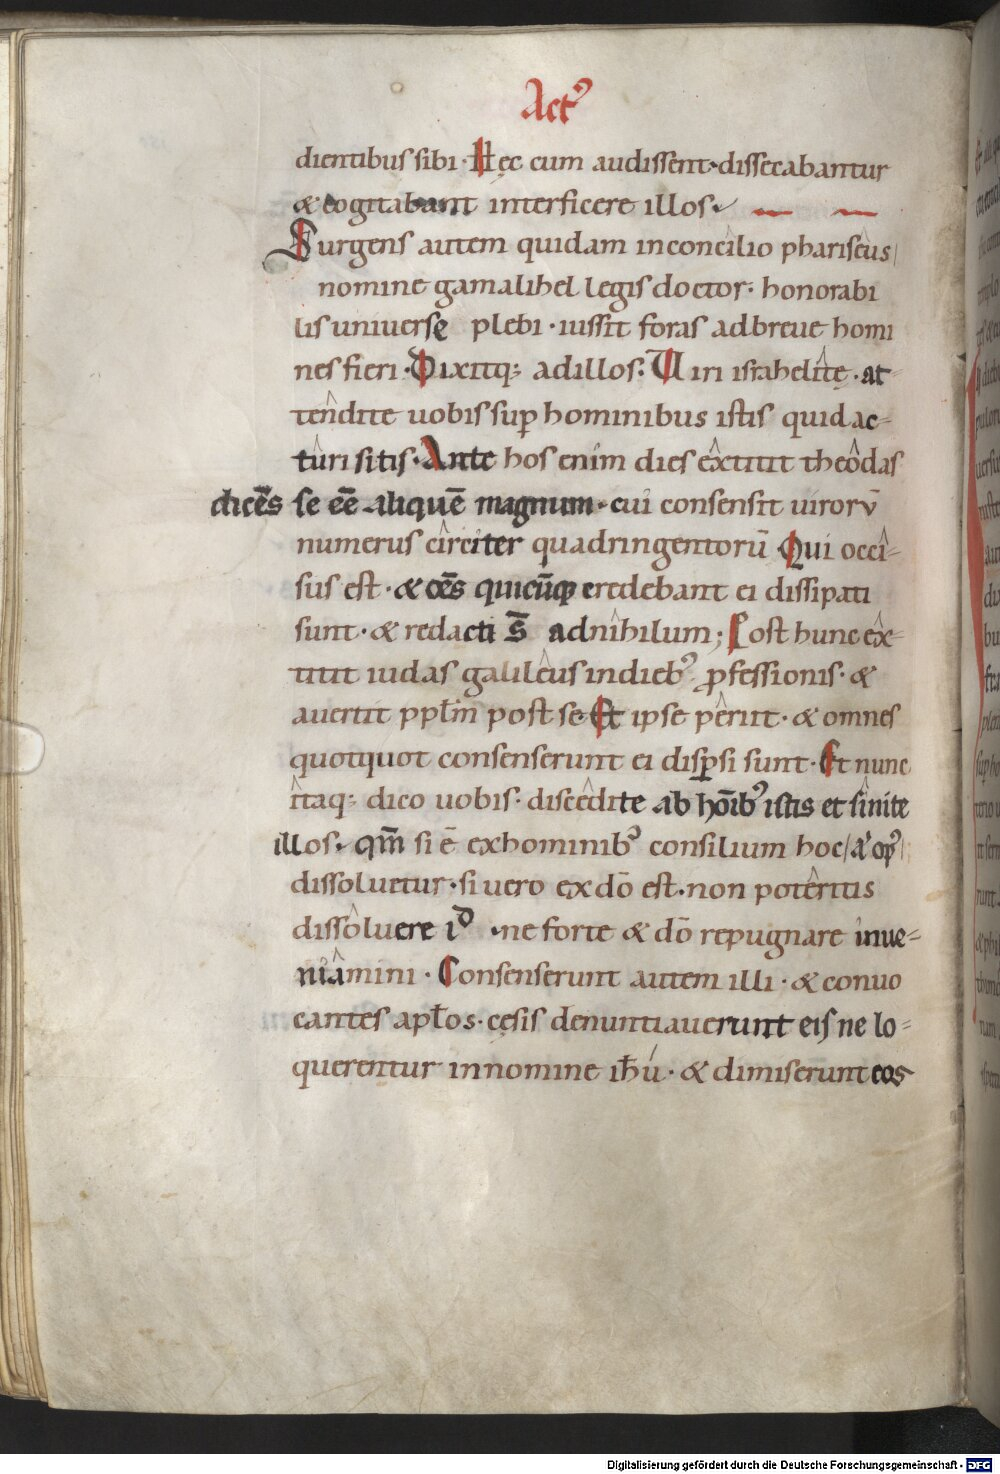 Act᾽
dientibus sibi · Hęc cum audissent · dissecabantur
& cogitabant interficere illos ·
Surgens autem quidam in concilio phariseus
nomine gamalihel legis doctor · honorabi
lis universę plebi · iussit foras ad breve homi
nes fieri · Dixitq; ad illos : Viri israhelitę · at-
tendite vobis sup̄ hominibus istis quid ac-
turi sitis · Ante hos enim dies extitit theodas
dicēs se ēē aliquē magnum · cui consensit virorū
numerus circiter quadringentorū Qui occi-
sus est · & oēs quicūq; credebant ei dissipati
sunt · & redacti s̄ ad nihilum ; Post hunc ex-
titit iudas galileus in dieb᾽ ꝓfessionis · &
avertit pplm̄ post se · Et ipse periit · & omnes
quotquot consenserunt ei dispsi sunt · Et nunc
itaq; dico vobis · discedite ab hōib᾽ istis et sinite
illos · qm̄ si ē ex hominib᾽ consilium hoc / a᾽ op᾽
dissolvetur · si vero ex dō est · non poteritis
dissolvere id · ne forte & dō repugnare inve-
niamini · Consenserunt autem illi · & convo
cantes aplos · cęsis denuntiaverunt eis ne lo-
querentur in nomine ihu · & dimiserunt eos
Digitalisierung gefördert durch die Deutsche Forschungsgemeinschaft - DFG